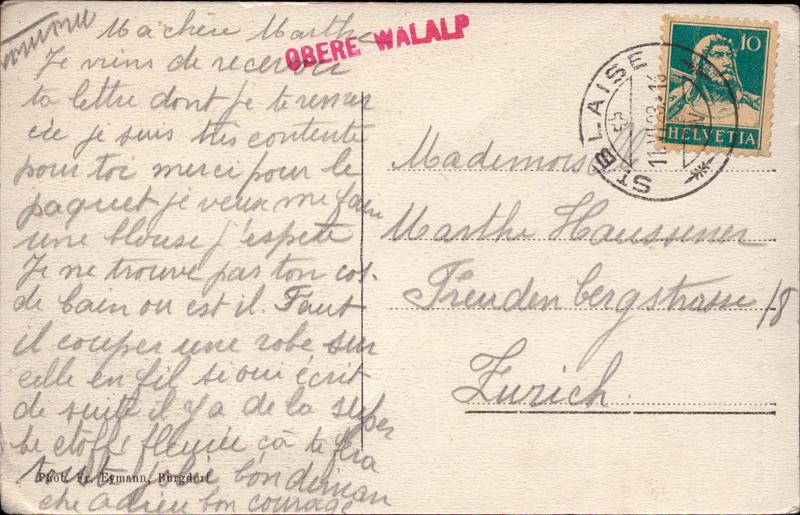 Ma chère Marthe
Je viens de recevoir
ta lettre dont je te remer
cie je suis très contente
pour toi merci pour le
paquet je veux me faire
une blouse j'espère
Je ne trouve pas ton cos.
de bain ou est il. Faut
il couper une robe sur
celle en fil si oui écrit
de suite il y a de la super
be etoffe fleurie ça te fra
tout jolie bon diman
che adieu bon courage
Phot. Fr. Eymann, Burgdorf
OBERE WALALP
ST. BLAISE
10
HELVETIA
Mademoiselle
Marthe Haussener
Freudenbergstrasse 18
Zurich.